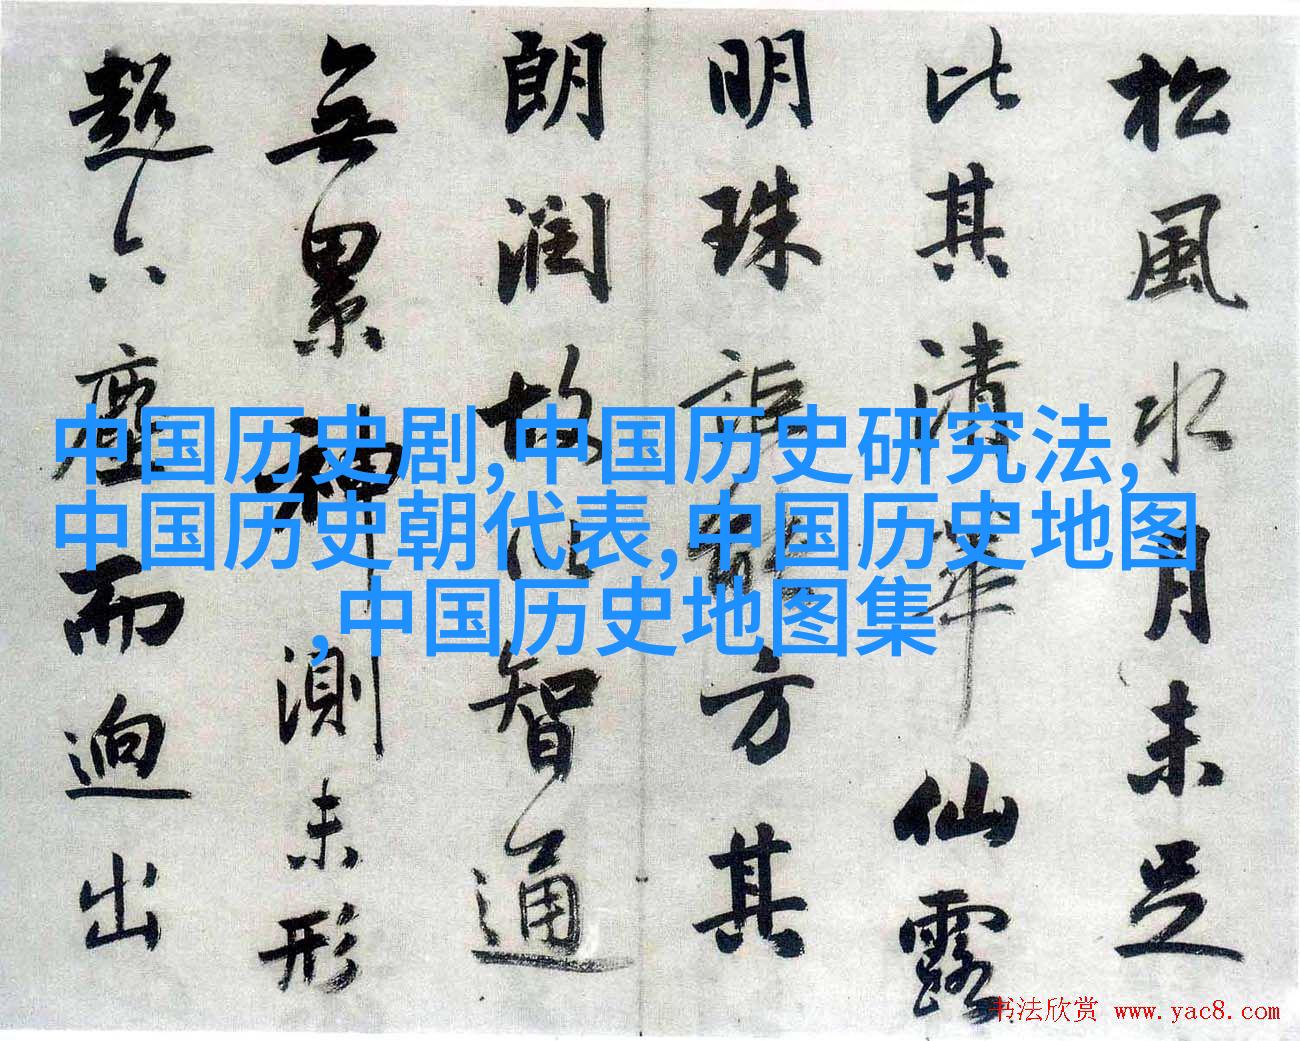 松風水月未足
比其清華仙露
明珠詎能方其
朗潤故以智通
無累神測未形
超六塵而迥出
中国历史剧,中国历史研究法,
中国历史朝代表,中国历史地图
,中国历史地图集
书法欣赏 www.yac8.com